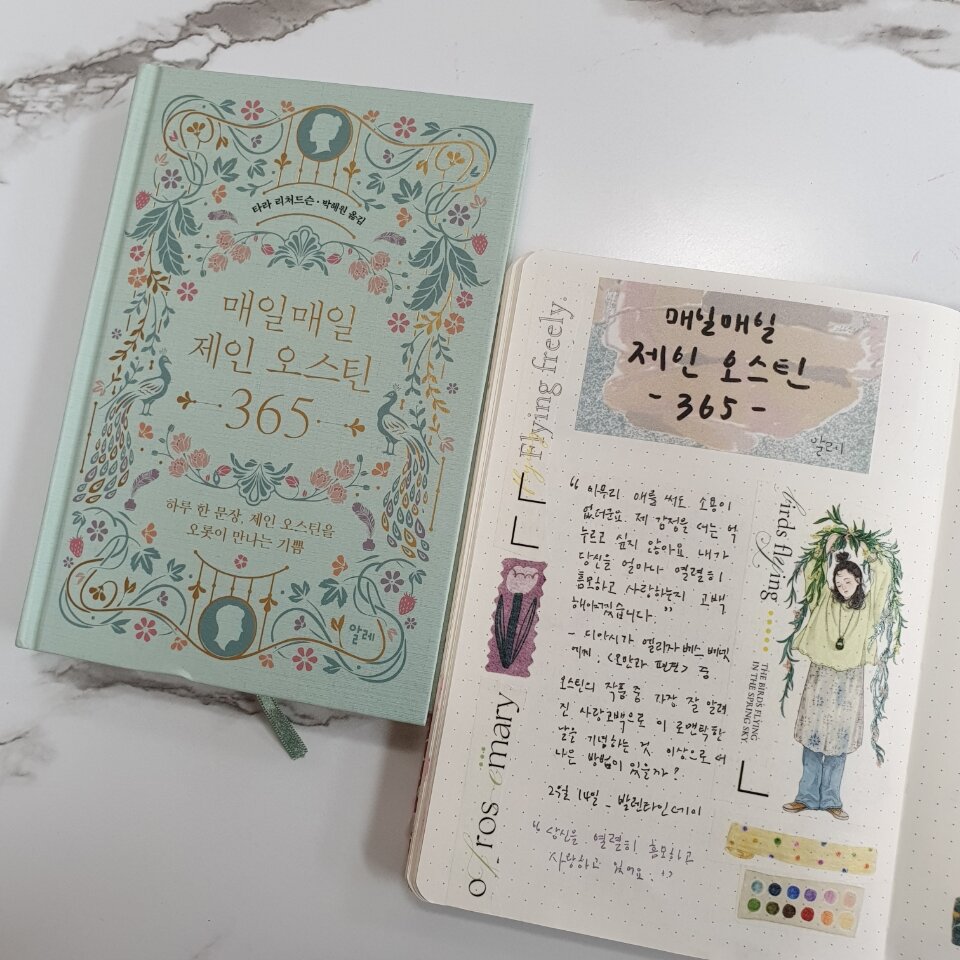 타라 리처드슨 · 박혜원 옮김
매일매일
제인 오스틴
365
하루 한 문장, 제인 오스틴을
오롯이 만나는 기쁨
알레
Flying freely.
매일매일
제인 오스틴
- 365 -
알레
“ 아무리 애를 써도 소용이
없더군요. 제 감정을 더는 억
누르고 싶지 않아요. 내가
당신을 얼마나 열렬히
흠모하고 사랑하는지 고백
해야겠습니다. ”
- 디아시가 엘리자베스 베넷
에게. <오만과 편견> 중
오스틴의 작품 중 가장 잘 알려
진 사랑고백으로 이 로맨틱한
날을 기념하는 것 이상으로 더
나은 방법이 있을까?
2월 14일 _ 발렌타인데이
“ 당신을 열렬히 흠모하고
사랑하고 있어요.
birds flying
THE BIRD'S FLYING
IN THE SPRING SKY
mary